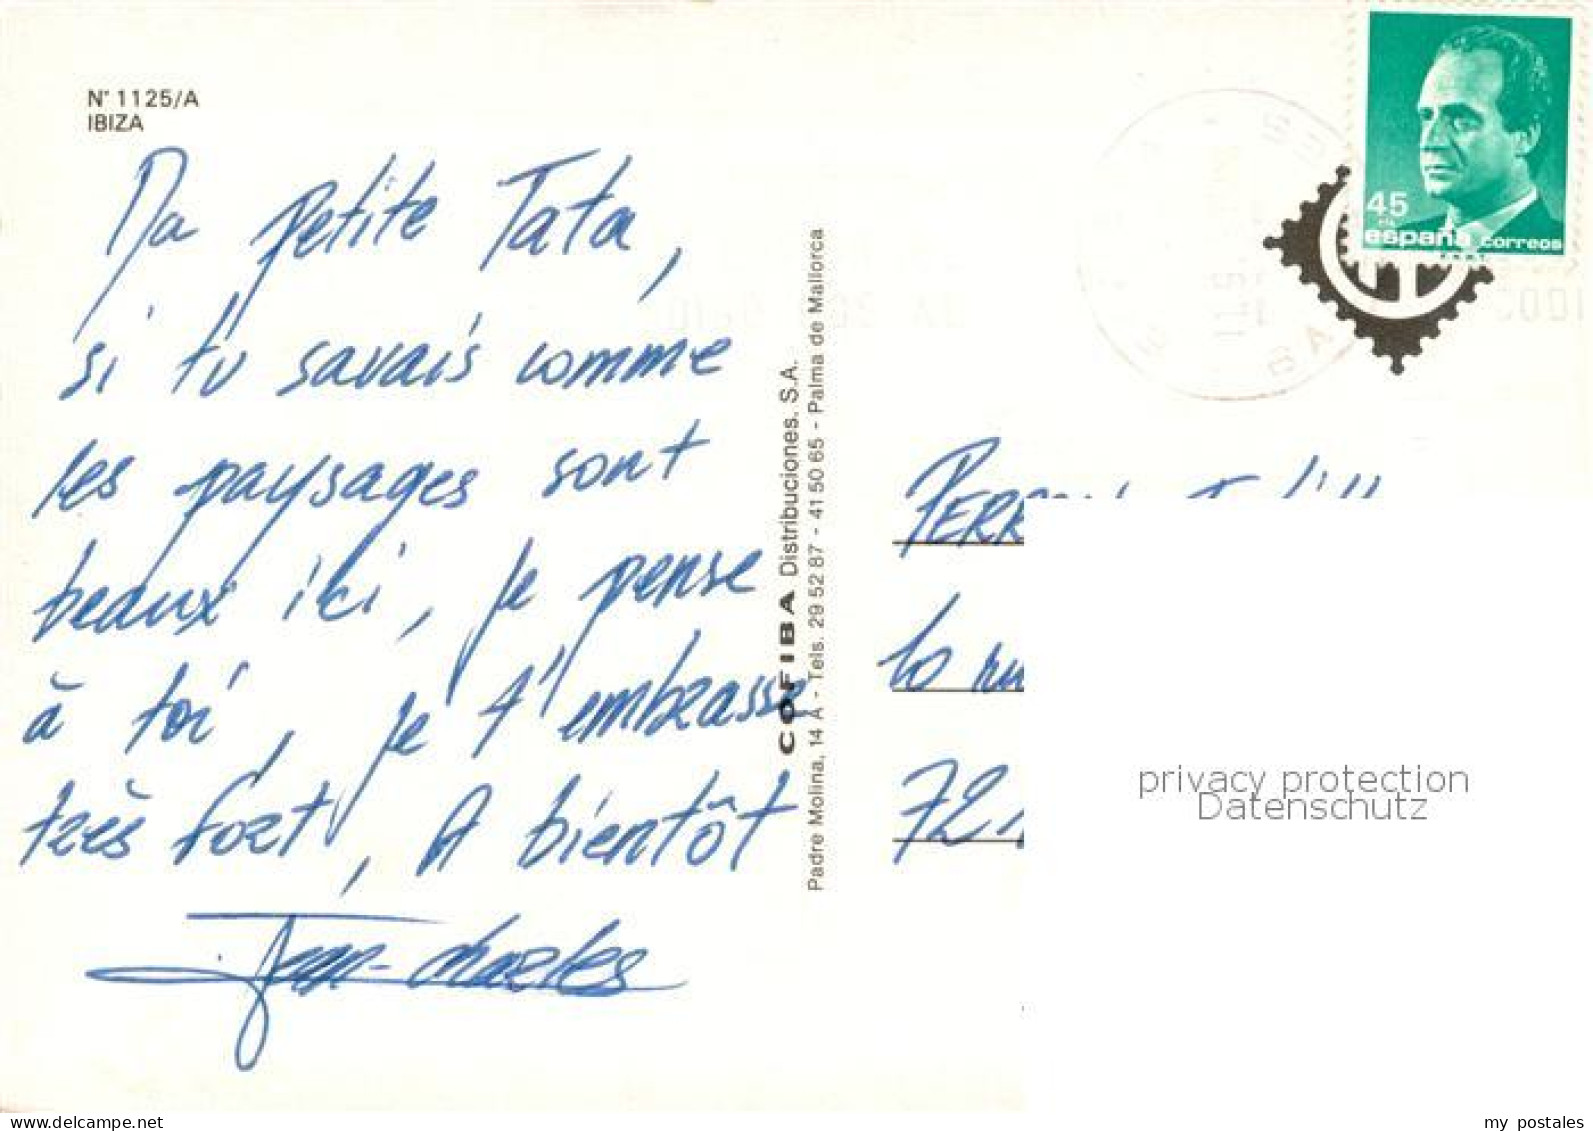 N° 1125/A
IBIZA
Ma petite Tata,
si tu savais comme
les paysages sont
beaux ici, je pense
à toi, je t'embrasse
très fort, A bientôt
Jean-charles
COFIBA Distribuciones. S.A.
Padre Molina, 14 A - Tels. 29 52 87 - 41 50 65 - Palma de Mallorca
45
españa correos
privacy protection
Datenschutz
my_postales